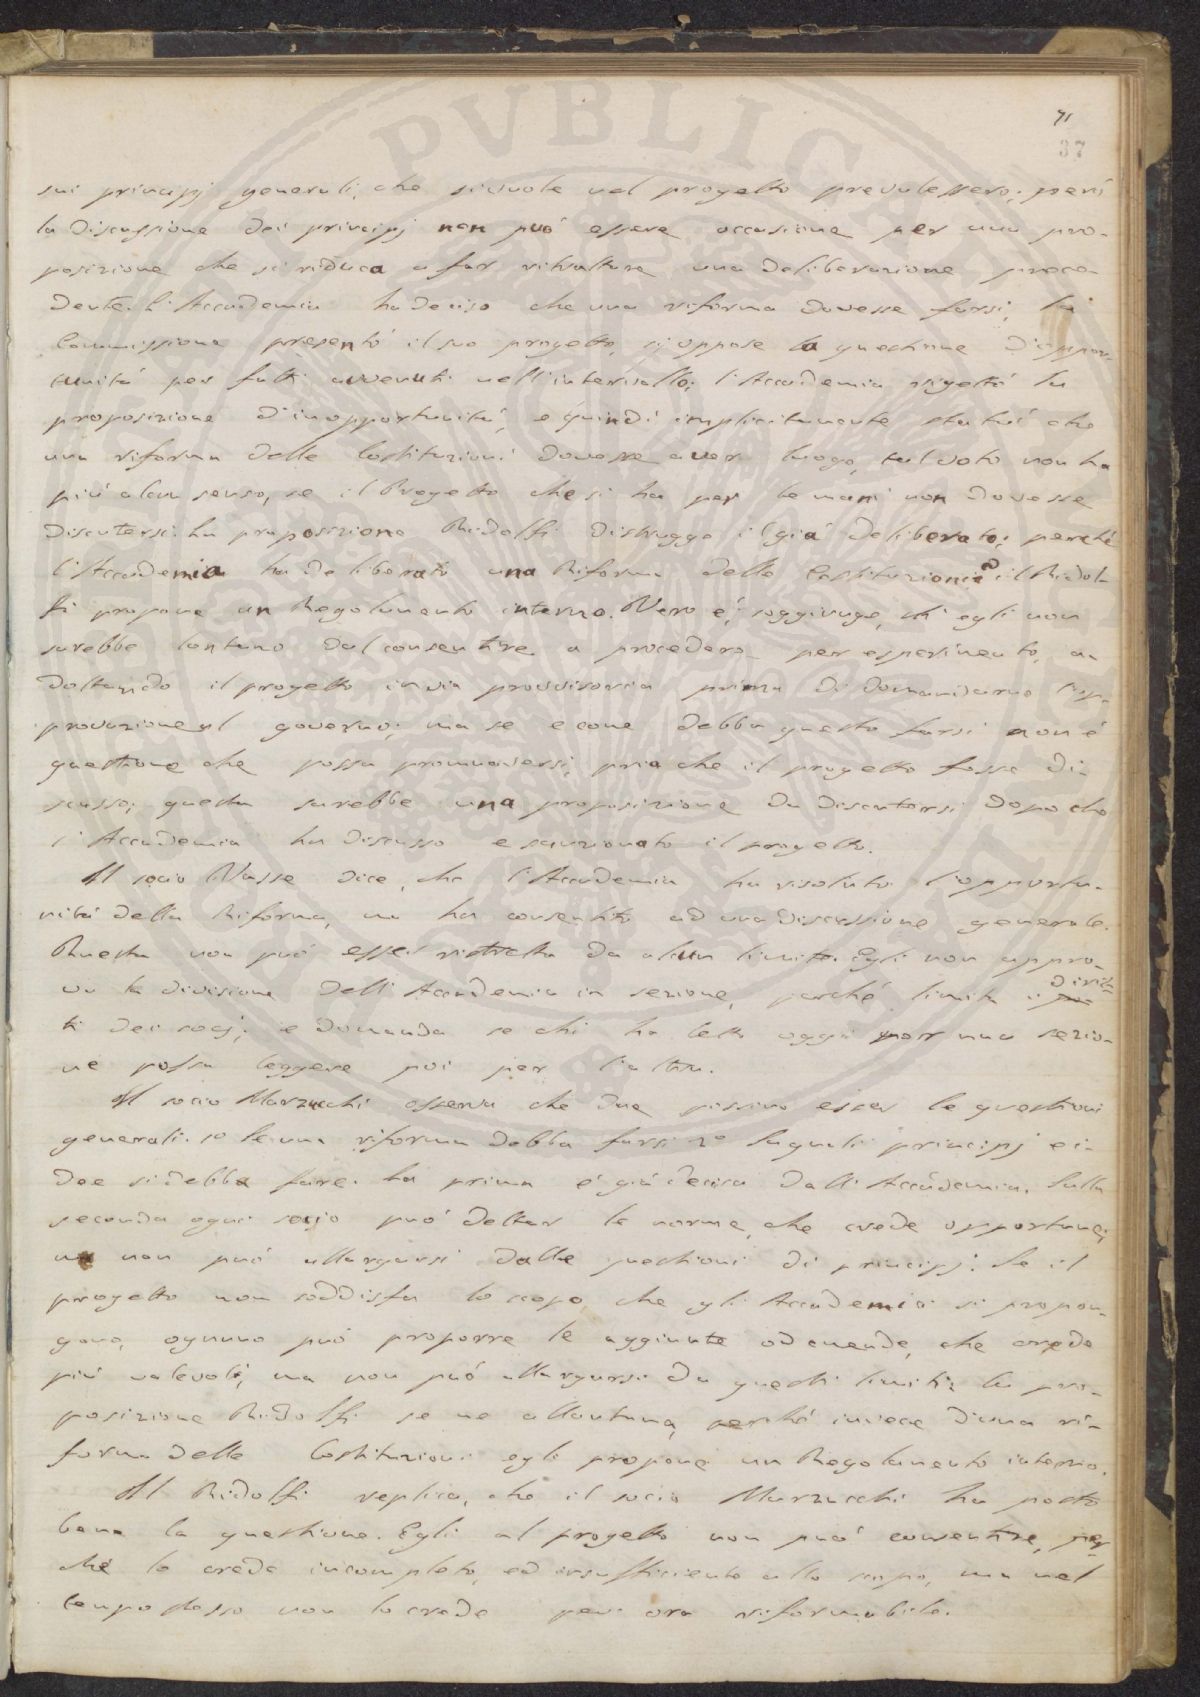 71
37
sui principj generali, che si vuole nel progetto prevalessero; però
la discussione dei principj non può essere occasione per una pro-
posizione che si riduca a far ritrattare una deliberazione prece-
dente. L'Accademia ha deciso che una riforma dovesse farsi, la
Commissione presentò il suo progetto, si oppose la questione d'oppor-
tunità per fatti avvenuti nell'intervallo; l'Accademia rigettò la
proposizione d'inopportunità, e quindi implicitamente statuì che
una riforma delle Costituzioni dovesse aver luogo, tal voto non ha
più alcun senso, se il Progetto che si ha per le mani non dovesse
discutersi. La proposizione Ridolfi distrugge il già deliberato; perchè
l'Accademia ha deliberato una Riforma delle Costituzioni e il Ridol-
fi propone un Regolamento interno. Vero è, soggiunge, ch'egli non
sarebbe lontano dal consentire a procedere per esperimento, a-
dottando il progetto in via provvisoria prima di domandarne l'ap-
provazione al governo; ma se e come debba questo farsi non è
questione che possa promuoversi, pria che il progetto fosse di-
scusso; questa sarebbe una proposizione da discutersi dopo che
l'Accademia ha discusso e sanzionato il progetto.
Il socio Vasse dice, che l'Accademia ha risoluto l'opportu-
nità della Riforma, ma ha consentito ad una discussione generale.
Questa non può esser ristretta da alcun limite. Egli non appro-
va la divisione dell'Accademia in sezione, perché limita i dirit-
ti dei socj; e domanda se chi ha letto oggi per una sezio-
ne possa leggere poi per l'altra.
Il socio Marzucchi osserva che due possino esser le questioni
generali. 1o Se una riforma debba farsi 2o Su quali principj e i-
dee si debba fare. La prima è già decisa dall'Accademia. Sulla
seconda ogni socio può dettar le norme, che crede opportune,
ma non può allargarsi dalle questioni di principj. Se il
progetto non soddisfa lo scopo, che gli Accademici si propon-
gono, ognuno può proporre le aggiunte od emende, che crede
più valevoli, ma non può allargarsi da questi limiti: la pro-
posizione Ridolfi se ne allontana, perchè invece d'una ri-
forma delle Costituzioni egli propone un Regolamento interno.
Il Ridolfi replica, che il socio Marzucchi ha posto
bene la questione. Egli al progetto non può consentire, per-
chè lo crede incompleto, ed insufficiente allo scopo, ma nel
tempo stesso non lo crede per ora riformabile.